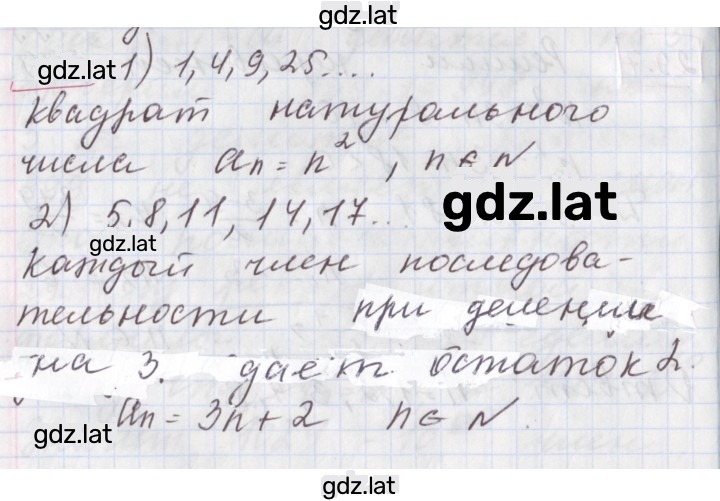 gdz.lat
gdz.lat 1) 1, 4, 9, 25....
Квадрат натурального
числа an = n², n ∈ N
2) 5, 8, 11, 14, 17...
gdz.lat
gdz.lat
Каждый член последова-
тельности при делении
на 3. дает остаток 2.
an = 3n + 2 n ∈ N.
gdz.lat
gdz.lat